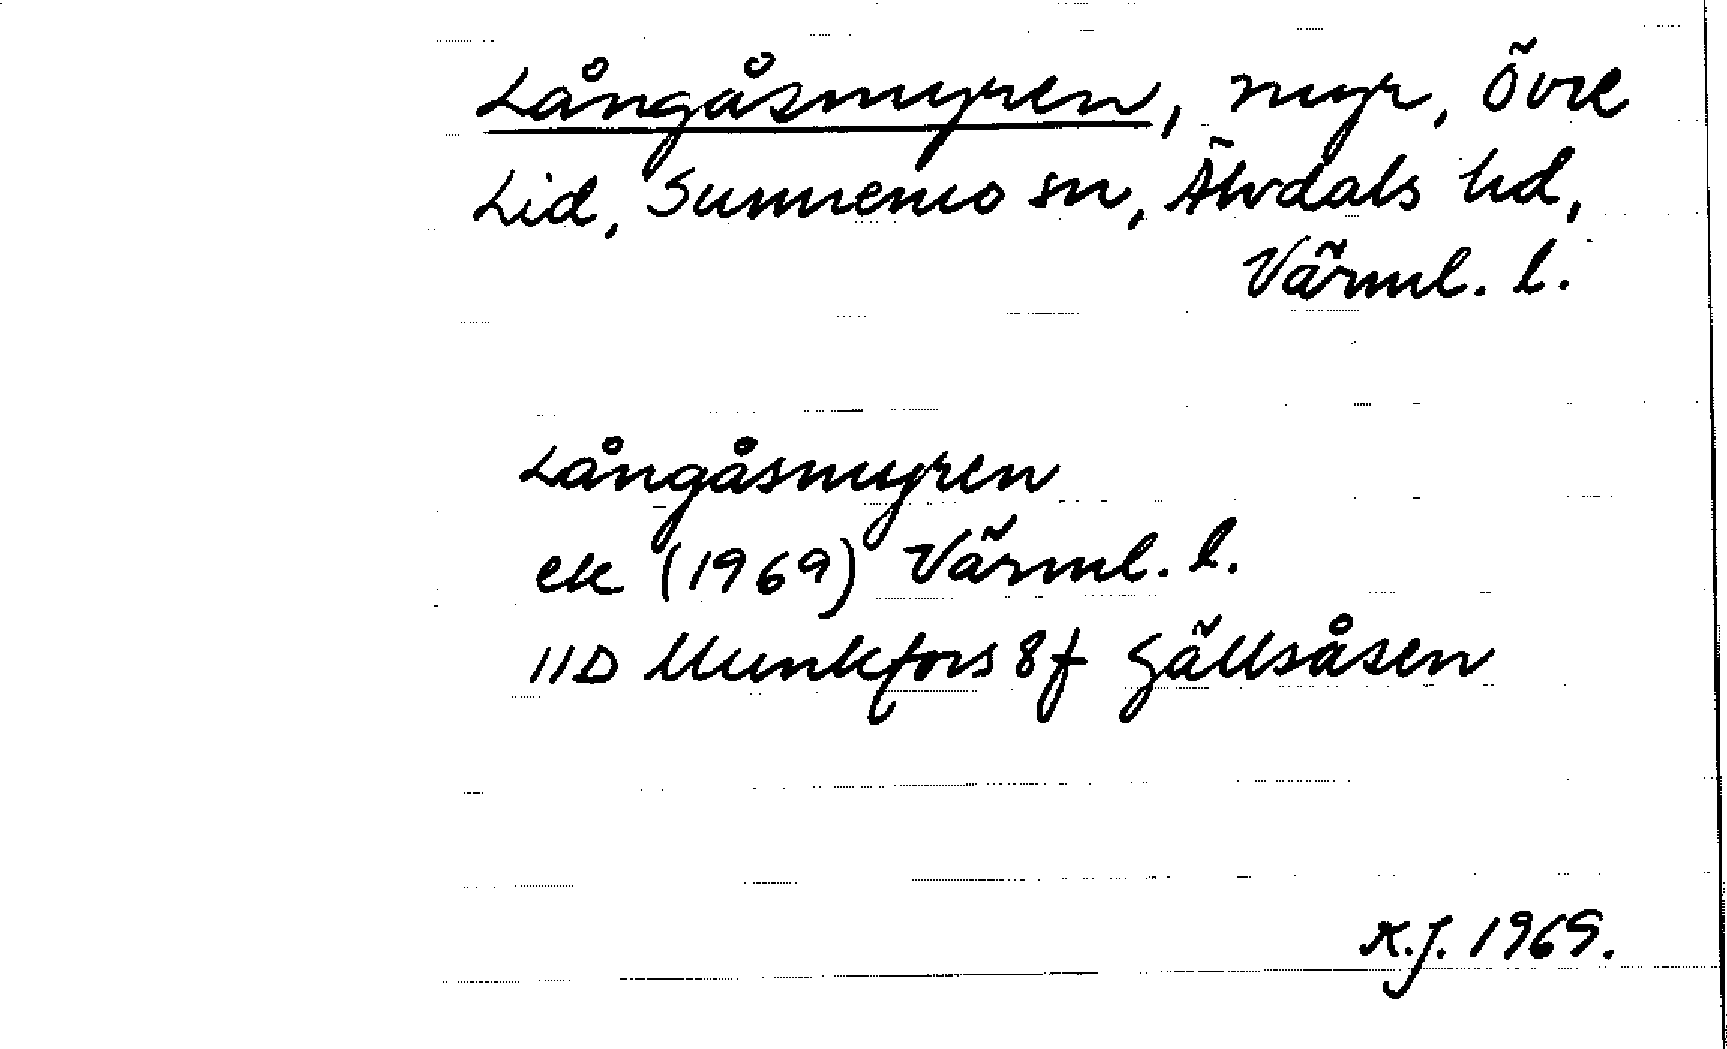 Långåsmyren, myr, Övre
Lid, Sunnemo sn, Älvdals hd,
Värml. l.
Långåsmyren
ek (1969) Värml. l.
11D Munkfors 8f Gällsåsen
K.J. 1969.